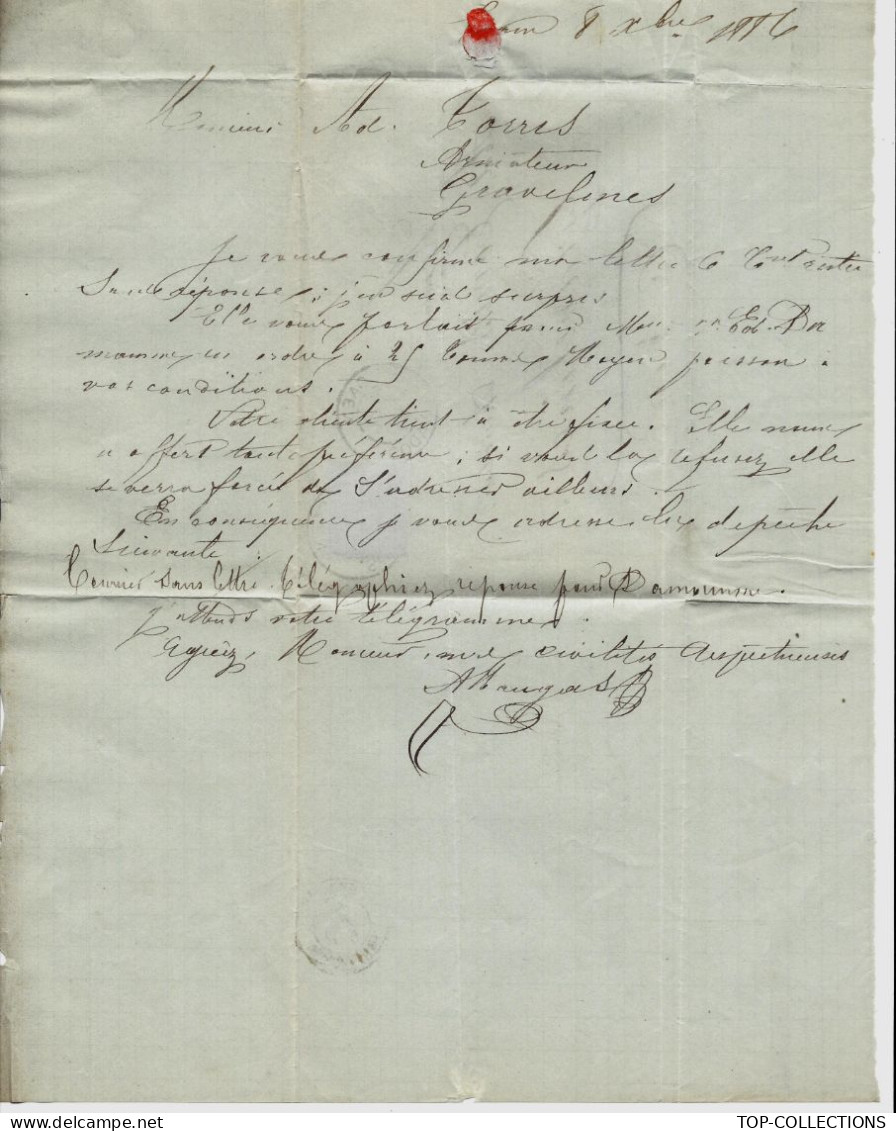 8 Xbre
Monsieur Ad. Torris
Armateur
Gravelines
Je vous confirme ma lettre 6 Ct restée
Sans réponse; j'en suis surpris
Elle vous portait pour Ed. Da
mamme un ordre à 25 tonnes Moyen poisson à
vos conditions.
Votre cliente tient à être fixée. Elle nous
a offert toute préférence; si vous la refusez elle
se verra forcée de S'adresser ailleurs.
En conséquence je vous adresse la dépêche
Suivante:
Courrier sans lettre. Télégraphiez réponse pour Damamme.
J'attends votre télégramme.
Agréez, Monsieur, mes civilités respectueuses
TOP-COLLECTIONS